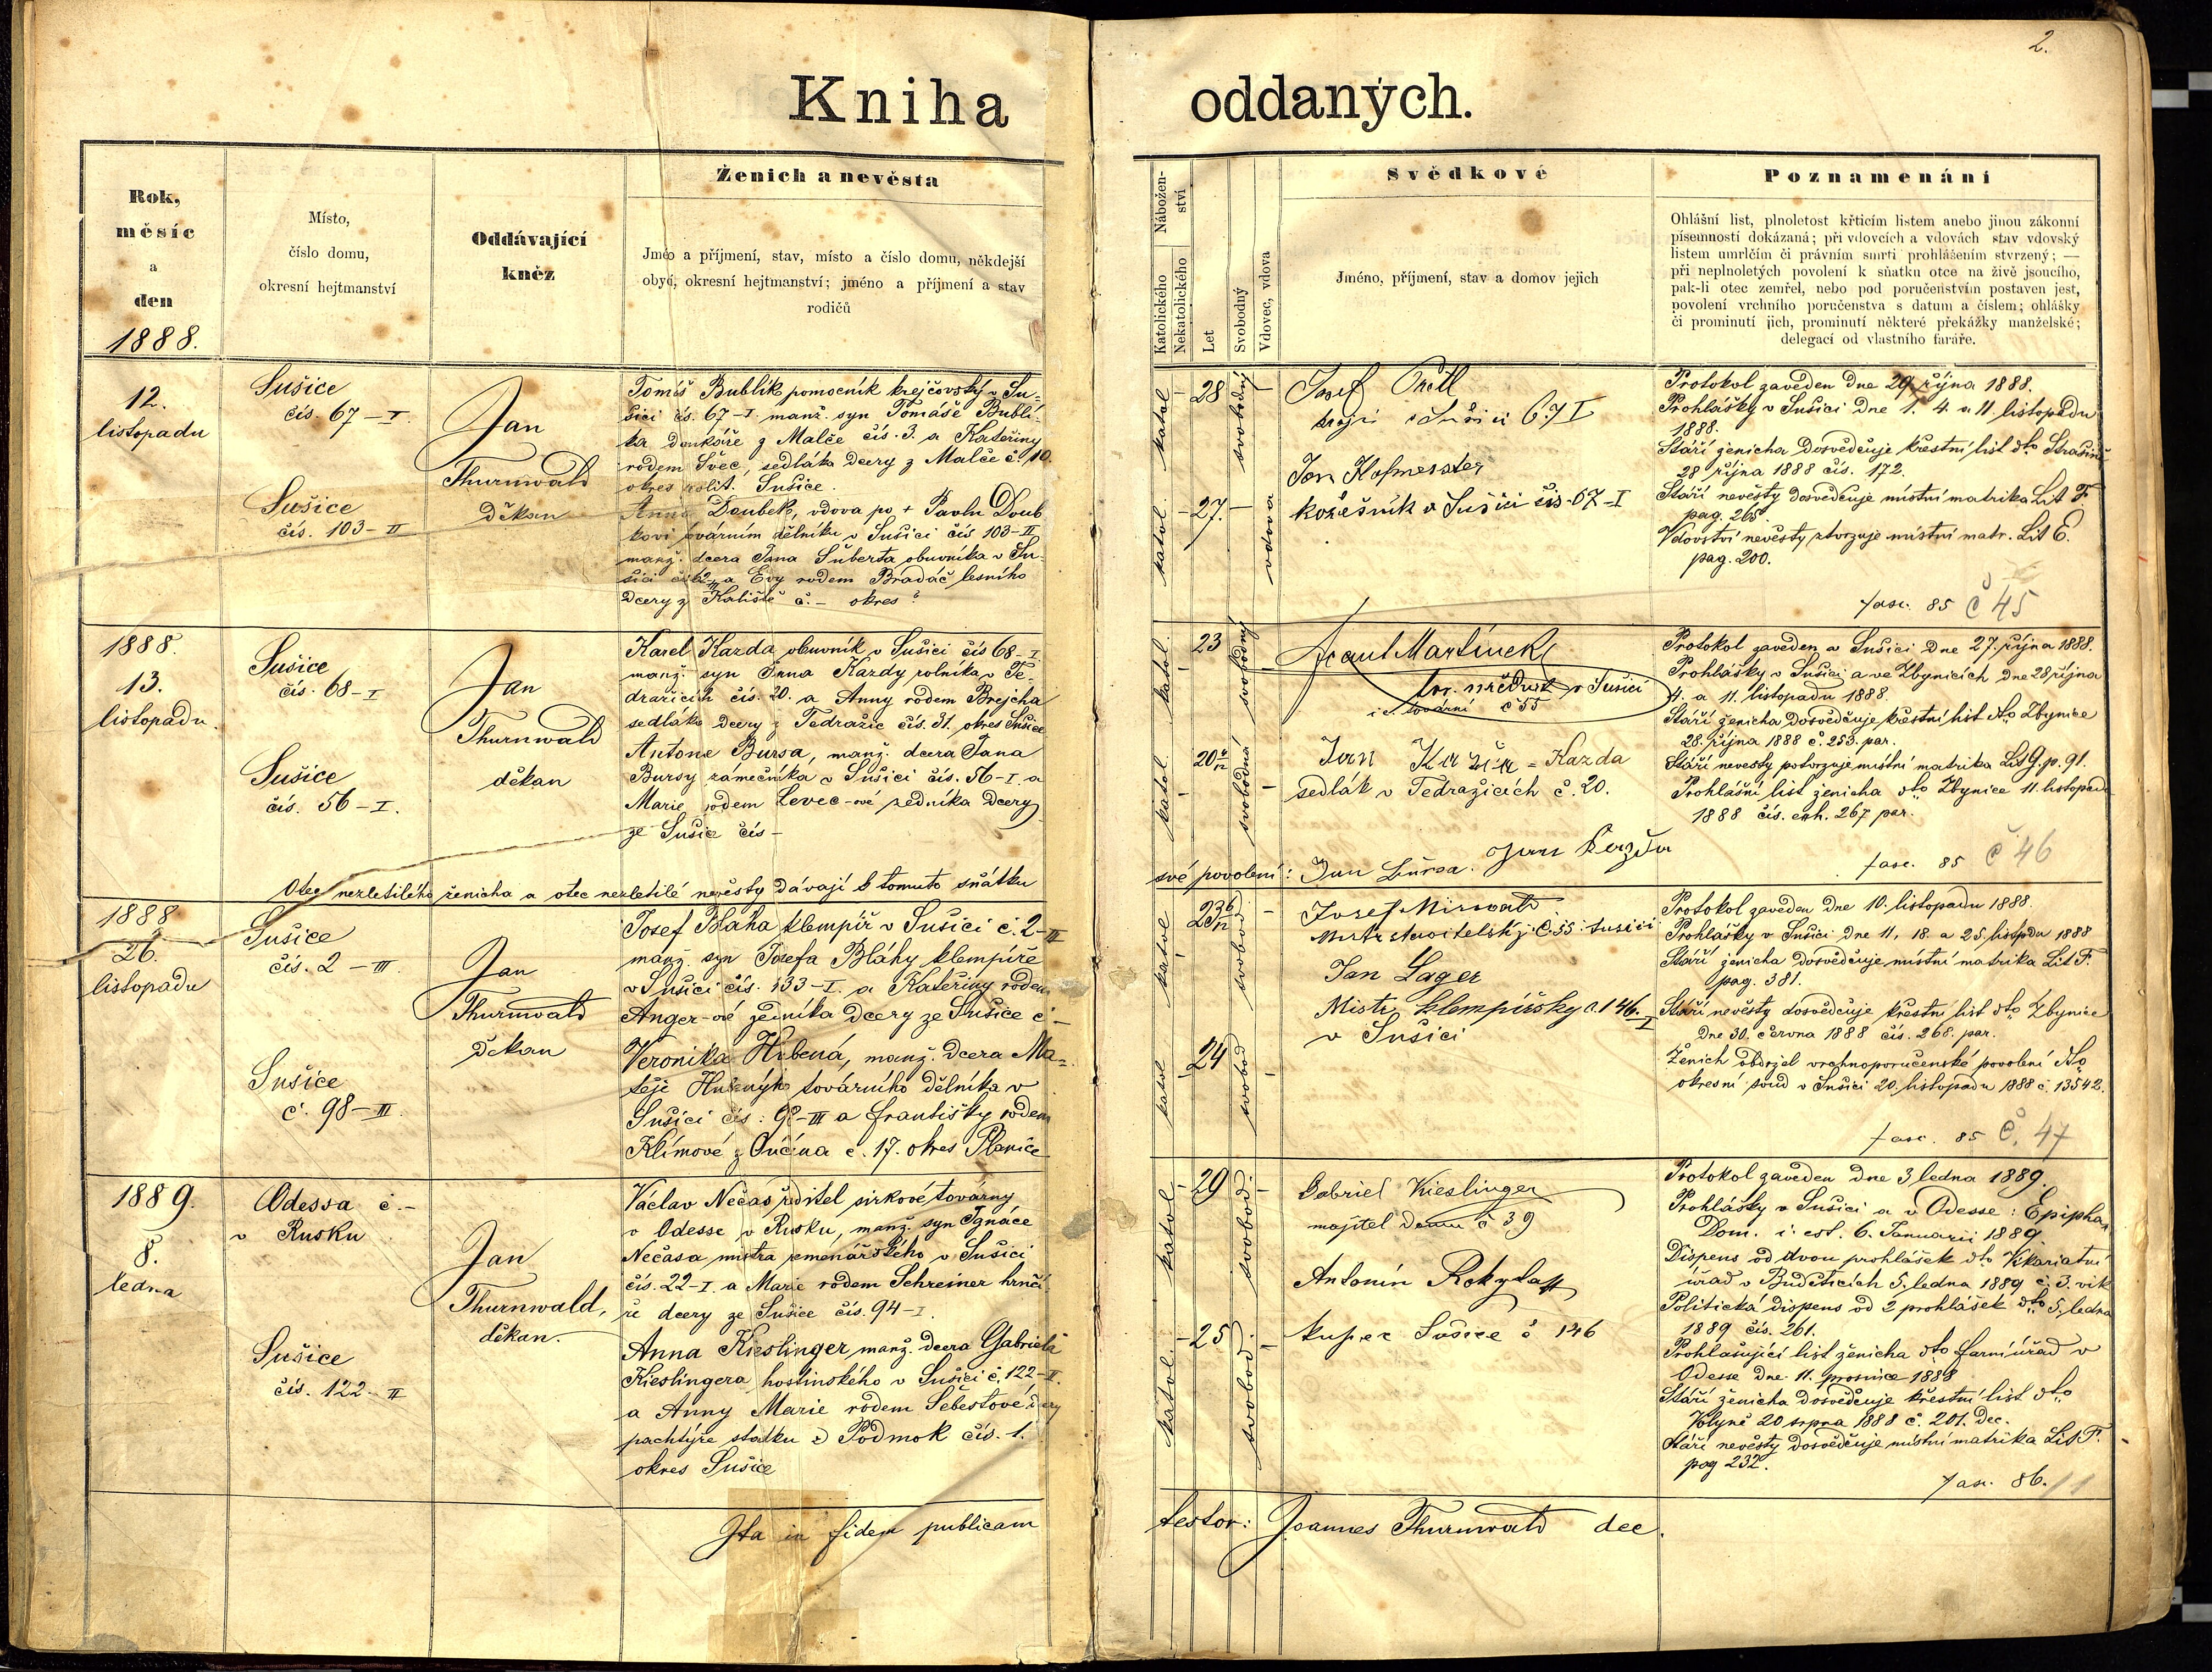 2.
Kniha oddaných.
Rok,
měsíc
a
den
1888.
Místo,
číslo domu,
okresní hejtmanství
Oddávající
kněz
Ženich a nevěsta
Jméo a příjmení, stav, místo a číslo domu, někdejší
obyd, okresní hejtmanství; jméno a příjmení a stav
rodičů
Nábožen-
ství
Katolického
Nekatolického
Let
Svobodný
Vdovec, vdova
Svědkové
Jméno, příjmení, stav a domov jejich
Poznamenání
Ohlášní list, plnoletost křticím listem anebo jinou zákonní
písemností dokázaná; při vdovcích a vdovách stav vdovský
listem umrlčím či právním smrti prohlášením stvrzený; —
při neplnoletých povolení k sňatku otce na živě jsoucího,
pak-li otec zemřel, nebo pod poručenstvím postaven jest,
povolení vrchního poručenstva s datum a číslem; ohlášky
či prominutí jich, prominutí některé překážky manželské;
delegací od vlastního faráře.
12.
listopadu
Sušice
čís. 67-I
Sušice
čís. 103-II
Jan
Thurnwald
děkan
Tomáš Bublík pomocník krejčovský v Su-
šici čís. 67-I. manž. syn Tomáše Bublí-
ka domkáře z Malče čís. 3. a Kateřiny
rodem Švec, sedláka dcery z Malče č. 10.
okres polit. Sušice.
Anna Doubek, vdova po + Pavlu Doub
kovi továrním dělníku v Sušici čís 103-II
manž. dcera Jana Šuberta obuvníka v Su-
šici a Evy rodem Bradáč lesního
dcery z Kaliště č. - okres?
katol. 28 svobodný
katol. 27. vdova
Josef
krejčí v Sušici 67 I
Jan Hofmeister
kožešník v Sušici čis. 67-I
Protokol zaveden dne 29 října 1888.
Prohlášky v Sušici dne 1. 4. a 11. listopadu
1888.
Stáří ženicha dosvědčuje křestní list dto Strašín
28 října 1888 čís. 172.
Stáří nevěsty dosvědčuje místní matrika Lit F.
pag. 265.
Vdovství nevěsty stvrzuje místní matr. Lit E.
pag. 200.
fasc. 85 č 45
1888.
13.
listopadu.
Sušice
čís. 68-I
Sušice
čís. 56-I.
Jan
Thurnwald
děkan
Karel Kazda obuvník v Sušici čís 68-I.
manž. syn Jana Kazdy rolníka v Te-
dražicích čís. 20. a Anny rodem Brejcha
sedláka dcery z Tedražic čís. 31. okres Sušice
Antone Bursa, manž. dcera Jana
Bursy zámečníka v Sušici čís. 56-I a
Marie rodem Levec-ové zedníka dcery
ze Sušice čís -
katol. 23 svobodný
katol. 20 svobodná
Frant Martínek
tov. v Sušici
č 55
Jan Kazda = Kazda
sedlák v Tedražicích č. 20.
Jan Kazda
Protokol zaveden v Sušici dne 27. října 1888.
Prohlášky v Sušici a ve Zbynicích dne 28 října
4. a 11. listopadu 1888.
Stáří ženicha dosvědčuje křestní list dto Zbynice
28. října 1888 č. 253. par.
Stáří nevěsty potvrzuje místní matrika Lit G. p. 91.
Prohlášní list ženicha dto Zbynice 11. listopadu
1888 čís. exh. 267 par.
fasc. 85 č 46
Otec nezletilého ženicha a otec nezletilé nevěsty dávají k tomuto sňatku své povolení: Jan Bursa.
1888
26.
listopadu
Sušice
čís. 2-III.
Sušice
č. 98-III.
Jan
Thurnwald
děkan
Josef Bláha klempíř v Sušici č. 2-III
manž. syn Josefa Bláhy klempíře
v Sušici čís. 133-I. a Kateřiny rodem
Anger-ové dcery ze Sušice č-
Veronika manž. dcera Ma-
těje továrního dělníka v
Sušici čís: 98-III a Františky rodem
Klímové z č. 17. okres Planice
katol 23 svobod
katol 24 svobod
Josef
Mistr stavitelský č. 55. Sušici
Jan Lager
Mistr klempířsky č. 146. I
v Sušici
Protokol zaveden dne 10. listopadu 1888.
Prohlášky v Sušici dne 11, 18. a 25. listopdu 1888
Stáří ženicha dosvědčuje místní matrika Lit F.
pag. 381.
Stáří nevěsty dosvědčuje křestní list dto Zbynice
dne 30. června 1888 čís. 268. par.
Ženich obdržel vrchnoporučenské povolení dto
okresní soud v Sušici 20. listopadu 1888 č. 13542.
fasc. 85 č. 47
1889.
8.
ledna
Odessa č. -
v Rusku
Sušice
čís. 122-II
Jan
Thurnwald,
děkan.
Václav Nečas ředitel sirkové továrny
v Odesse v Rusku, manž. syn Ignáce
Nečasa mistra řemenářského v Sušici
čís. 22-I. a Marie rodem Schreiner hrnčí-
ře dcery ze Sušice čís. 94-I.
Anna Kieslinger manž. dcera Gabriela
Kieslingera hostinského v Sušici č. 122-II.
a Anny Marie rodem Šebestové dcery
pachtýře statku z Podmok čís. 1.
okres Sušice
katol. 29 svobod.
katol. 25 svobod.
Gabriel Kieslinger
majitel domu č 39
Antonín Rokyta
kupec Sušice č 146
Protokol zaveden dne 3 ledna 1889.
Prohlášky v Sušici a v Odesse: Epiphan
Dom. i. est. 6. Januarii 1889.
Dispens od dvou prohlášek dto Vikariatní
úřad v Budětících 5. ledna 1889 č. 3. vik
Politická dispens od 2 prohlášek dto 5. ledna
1889 čís. 261.
Prohlašující list ženicha dto farní úřad v
Odesse dne 11. prosince 1888
Stáří ženicha dosvědčuje křestní list dto
Volyně 20 srpna 1888 č. 201. Dec.
Stáří nevěsty dosvědčuje místní matrika Lit F.
pag 232.
fasc. 86. / 1
Ita in fidem publicam testor: Joannes Thurnwald dec.